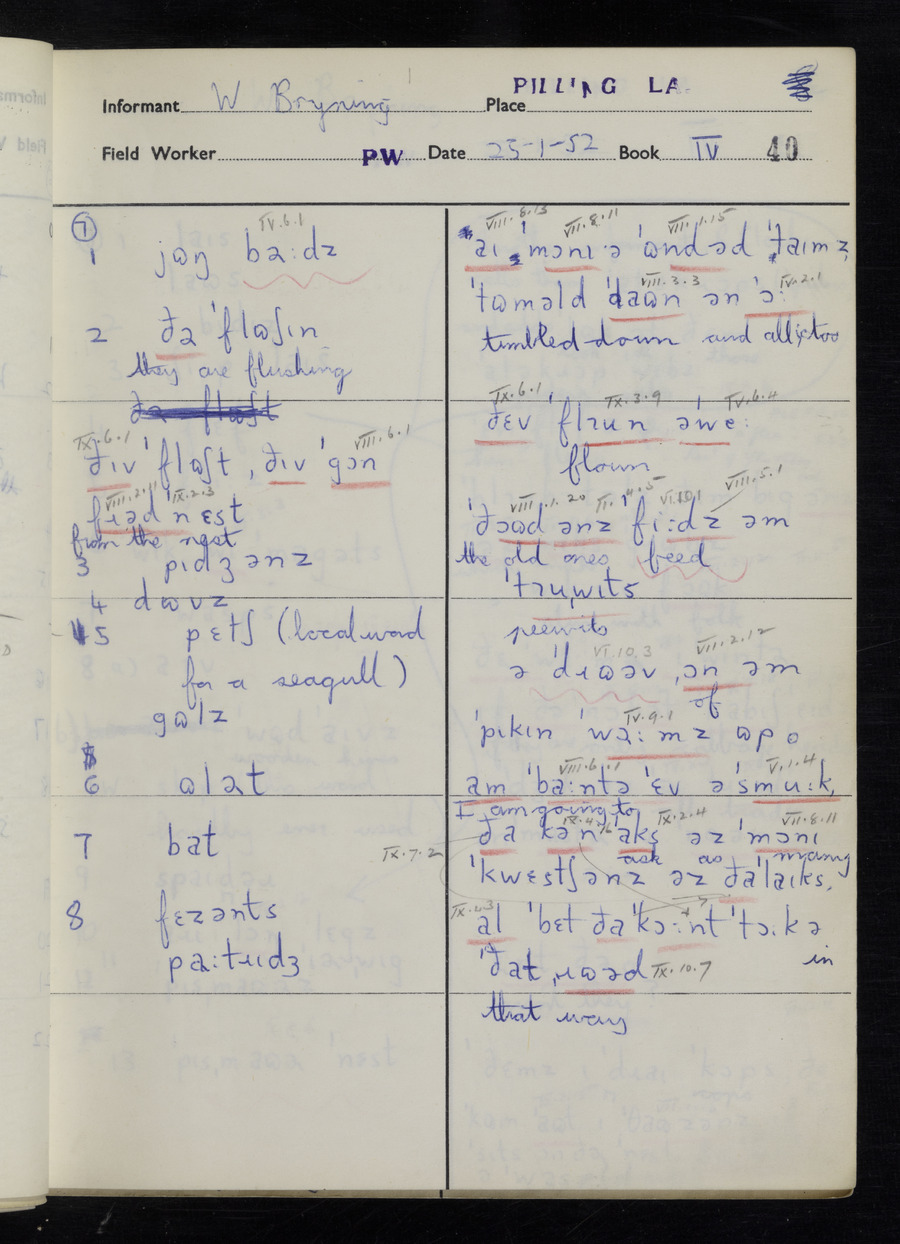 Informant W Bryning Place PILLING LA.
Field Worker PW Date 25-1-52 Book IV 40
7
IV.6.1
1 jɷŋ ba:dz
2 ðə 'flɷʃın
they are flushing
IX.6.1 VIII.6.1
ðıv 'flɷʃt, ðıv 'gɔn
VIII.2.11 IX.2.3
fɹəd 'nɛst
from the nest
3 pıdʒənz
4 dɷvz
5 pɛtʃ (local word
for a seagull)
gɷlz
6 ɷlət
7 bat
8 fɛzənts
pa:tɹıdʒ
VIII.8.13 VII.8.11 VII.1.15
aı 'mɔnı ə 'ɷndɹəd 'taımz
VIII.3.3 IV.2.1
'tɷməld 'daɷn ən 'ɔ:
tumbled down and all, too
IX.6.1 IX.3.9 IV.6.4
ðɛv 'flɹun əwe:
flown
VIII.1.20 II.4.5 VI.10.1 VIII.5.1
'ðɔɷd ənz 'fi:dz əm
the old ones feed
'tɹu,wıts
peewits
VI.10.3 VII.2.12
ə 'dɹɷəv ,ɔn əm
of
IV.9.1
'pıkın 'wɔ:mz ɷp o
VIII.6.1 V.1.4
am 'ba:ntə 'ɛv ə 'smu:k,
I am going to
IX.4.16 IX.2.4 VII.8.11
ða kən 'aks əz 'mɔnı
ask as many
IX.7.2
'kwɛstʃənz əz ða 'laıks,
IX.2.3
al 'bɛt ða 'kɔ:nt 'tɔ:k ə
'ðat ,ɹɷəd IX.10.7 in
that way